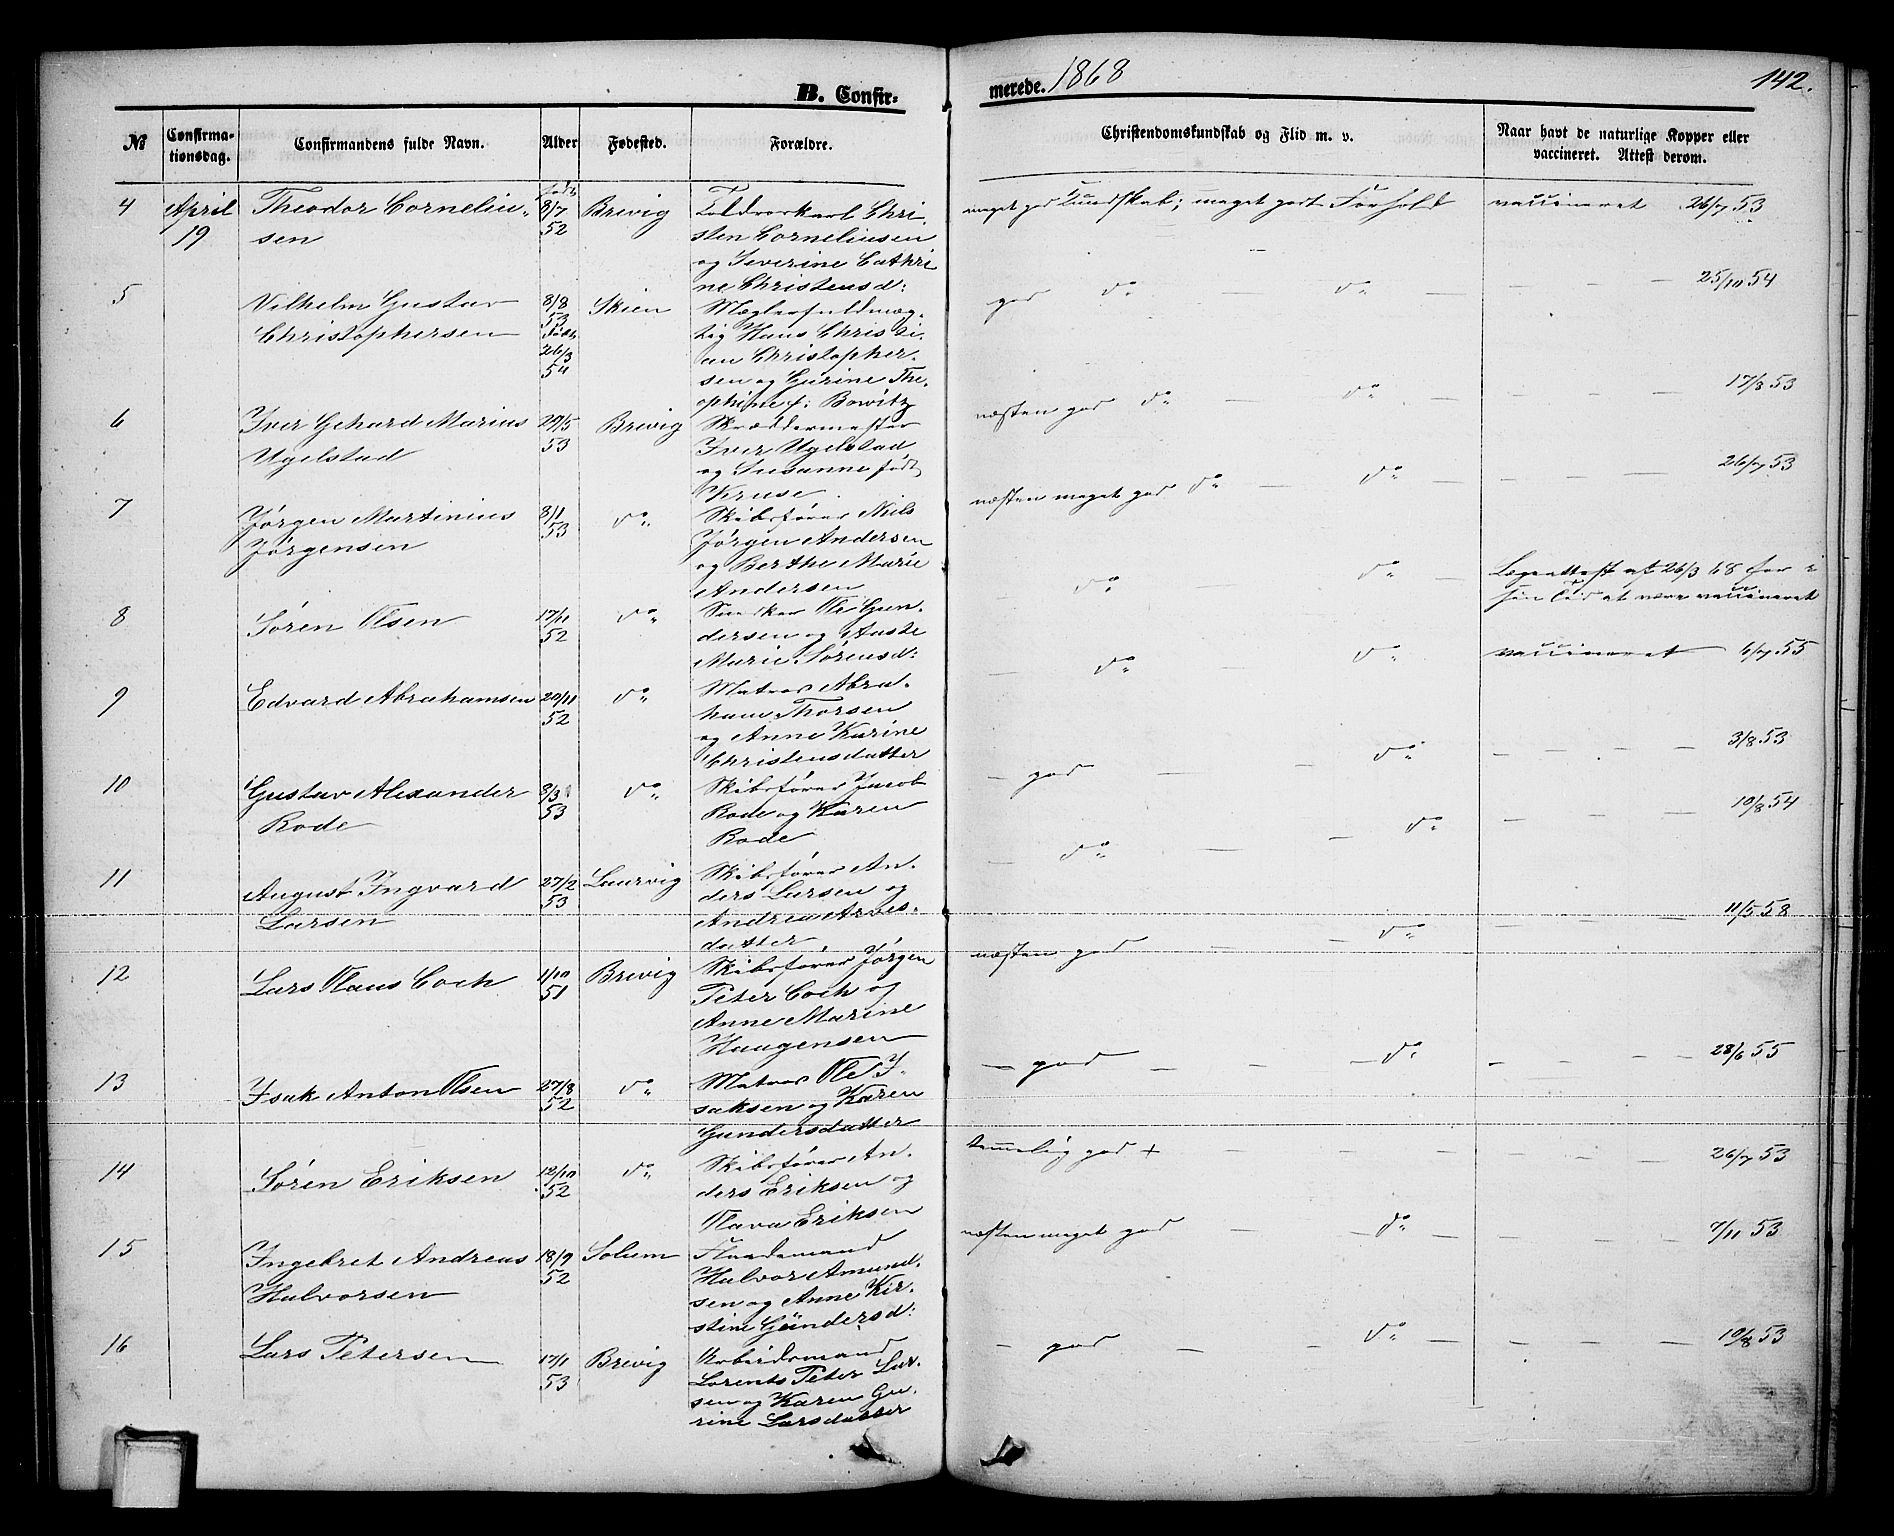 B. Confir-
merede. 1868
142.
No
Confirma-
tionsdag.
Confirmandens fulde Navn.
Alder
Fødested.
Forældre.
Christendomskundskab og Flid m. v.
Naar havt de naturlige Kopper eller
vaccineret. Attest derom.
4 April 19 Theodor Cornelius- født 8/7 52 Brevig
sen
Toldvorkarl Chri
sten Corneliusen
og Severine Cathri
ne Christensd:
meget god Kundskab; meget godt Forhold
vaccineret 26/7 53
5 Vilhelm Gustav 8/8 53 Skien
Christophersen
26/3 54
Mæglerfuldmæg-
tig Hans Christi-
an Christopher-
sen og Gurine The-
ophine f: Bowitz
god do — do —
25/10 54
6 Iver Gehard Marius 29/5 53 Brevig
Ugelstad
Skræddermester
Iver Ugelstad
og Susanne født
Kruse
næsten god do — do —
17/8 53
7 Jørgen Martinius 8/1 53 do
Jørgensen
Skibsfører Niels
Jørgen Andersen
og Berthe Marie
Andersen
næsten meget god do — do —
26/7 53
8 Søren Olsen 17/11 52 do
Snedker Ole Gun-
dersen og Aaste
Marie Sørensd:
— do — do —
Lægeattest af 26/3 68 for i
sin Tid at være vaccineret
9 Edvard Abrahamsen 20/11 52 do
Matros Abra-
ham Thorsen
og Anne Karine
Christensdatter
— do — do —
vaccineret 6/7 55
10 Gustav Alexander 8/3 53 do
Rode
Skibsfører Jacob
Rode og Karen
Rode
— god — do —
3/8 53
11 August Ingvard 27/2 53 Laurvig
Larsen
Skibsfører An-
ders Larsen og
Andrea Arves-
datter
— do — do —
10/8 54
12 Lars Claus Coch 1/10 51 Brevig
Skibsfører Jørgen
Peter Coch og
Anne Marine
Haagensen
næsten god — do —
11/5 58
13 Isak Anton Olsen 27/8 52 do
Matros Ole I-
saksen og Karen
Gundersdatter
— god — do —
28/6 55
14 Søren Eriksen 12/10 52 do
Skibsfører An-
ders Eriksen og
Olava Eriksen
temmelig god +
26/7 53
15 Ingebret Andreas 18/9 52 Solum
Halvorsen
Flaademand
Halvor Amund-
sen og Anne Kir-
stine Gundersd:
næsten meget god — do
7/11 53
16 Lars Petersen 17/1 53 Brevig
Arbeidsmand
Lorents Peter Lar-
sen og Karen Gu-
rine Larsdatter
— god — do —
10/8 53